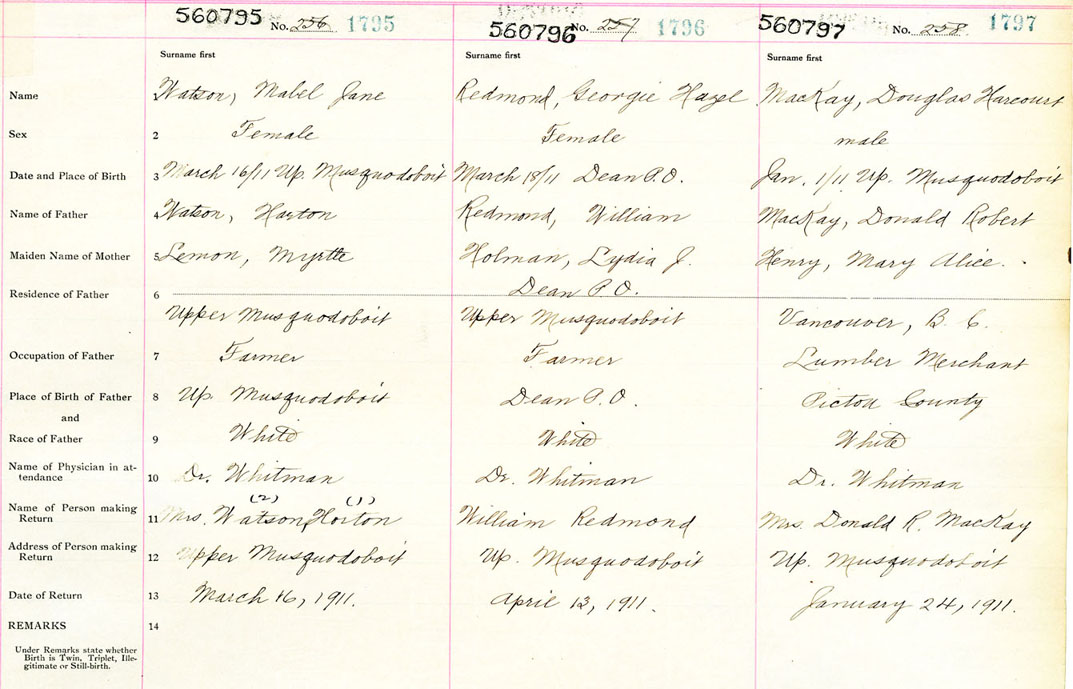 560795 No. 256 1795
560796 No. 257 1796
560797 No. 258 1797
Surname first Surname first Surname first
Name 1 Watson, Mabel Jane Redmond, Georgie Hazel MacKay, Douglas Harcourt
Sex 2 Female Female male
Date and Place of Birth 3 March 16/11 Up. Musquodoboit March 18/11 Dean P.O. Jan. 1/11 Up. Musquodoboit
Name of Father 4 Watson, Horton Redmond, William MacKay, Donald Robert
Maiden Name of Mother 5 Lemon, Myrtle Holman, Lydia J. Henry, Mary Alice.
Dean P.O.
Residence of Father 6
Upper Musquodoboit Upper Musquodoboit Vancouver, B. C.
Occupation of Father 7 Farmer Farmer Lumber Merchant
Place of Birth of Father 8 Up. Musquodoboit Dean P.O. Pictou County
and
Race of Father 9 White White White
Name of Physician in at-
tendance 10 Dr. Whitman Dr. Whitman Dr. Whitman
(2) (1)
Name of Person making
Return 11 Mrs. Watson, Horton William Redmond Mrs. Donald R. MacKay
Address of Person making
Return 12 Upper Musquodoboit Up. Musquodoboit Up. Musquodoboit
Date of Return 13 March 16, 1911. April 13, 1911. January 24, 1911.
REMARKS 14
Under Remarks state whether
Birth is Twin, Triplet, Ille-
gitimate or Still-birth.